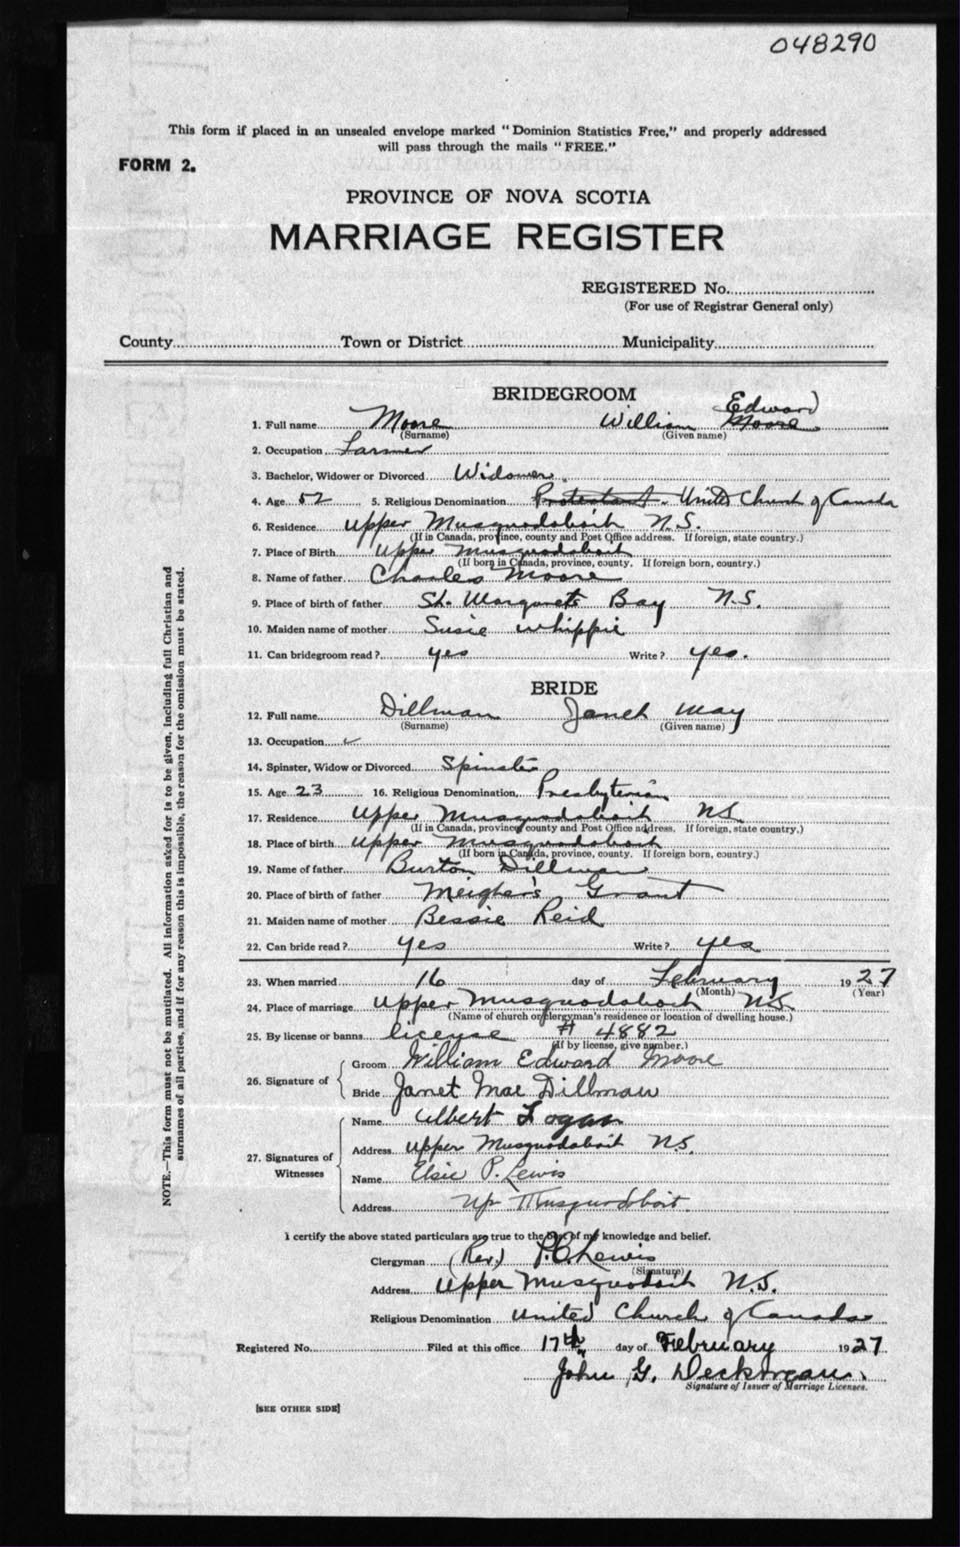 048290
This form if placed in an unsealed envelope marked "Dominion Statistics Free," and properly addressed
will pass through the mails "FREE."
FORM 2.
PROVINCE OF NOVA SCOTIA
MARRIAGE REGISTER
REGISTERED No.
(For use of Registrar General only)
County Town or District Municipality
BRIDEGROOM
Edward
1. Full name Moore William Moore
(Surname) (Given name)
2. Occupation Farmer
3. Bachelor, Widower or Divorced Widower.
4. Age 52 5. Religious Denomination Protestant. United Church of Canada
6. Residence Upper Musquodoboit N.S.
(If in Canada, province, county and Post Office address. If foreign, state country.)
7. Place of Birth Upper Musquodoboit
(If born in Canada, province, county. If foreign born, country.)
8. Name of father Charles Moore
9. Place of birth of father St. Margarets Bay N.S.
10. Maiden name of mother Susie Whippie
11. Can bridegroom read? yes Write? yes.
BRIDE
12. Full name Dillman Janet May
(Surname) (Given name)
13. Occupation
14. Spinster, Widow or Divorced Spinster
15. Age 23 16. Religious Denomination, Presbyterian
17. Residence Upper Musquodoboit NS
(If in Canada, province, county and Post Office address. If foreign, state country.)
18. Place of birth Upper Musquodoboit
(If born in Canada, province, county. If foreign born, country.)
19. Name of father Burton Dillman
20. Place of birth of father Meigher's Grant
21. Maiden name of mother Bessie Reid
22. Can bride read? yes Write? yes
23. When married 16 day of February 1927
(Month) (Year)
24. Place of marriage Upper Musquodoboit N.S.
(Name of church or clergyman's residence or location of dwelling house.)
25. By license or banns license # 4882
(If by license, give number.)
26. Signature of Groom William Edward Moore
Bride Janet Mae Dillman
27. Signatures of Witnesses Name Albert Logan
Address Upper Musquodoboit N.S.
Name Elsie P. Lewis
Address Up Musquodoboit.
I certify the above stated particulars are true to the best of my knowledge and belief.
Clergyman (Rev.) P.C. Lewis
(Signature)
Address Upper Musquodoit N.S.
Religious Denomination United Church of Canada
Registered No. Filed at this office 17th day of February 1927
John G.
Signature of Issuer of Marriage Licenses.
[SEE OTHER SIDE]
NOTE.—This form must not be mutilated. All information asked for is to be given, including full Christian and
surnames of all parties, and if for any reason this is impossible, the reason for the omission must be stated.